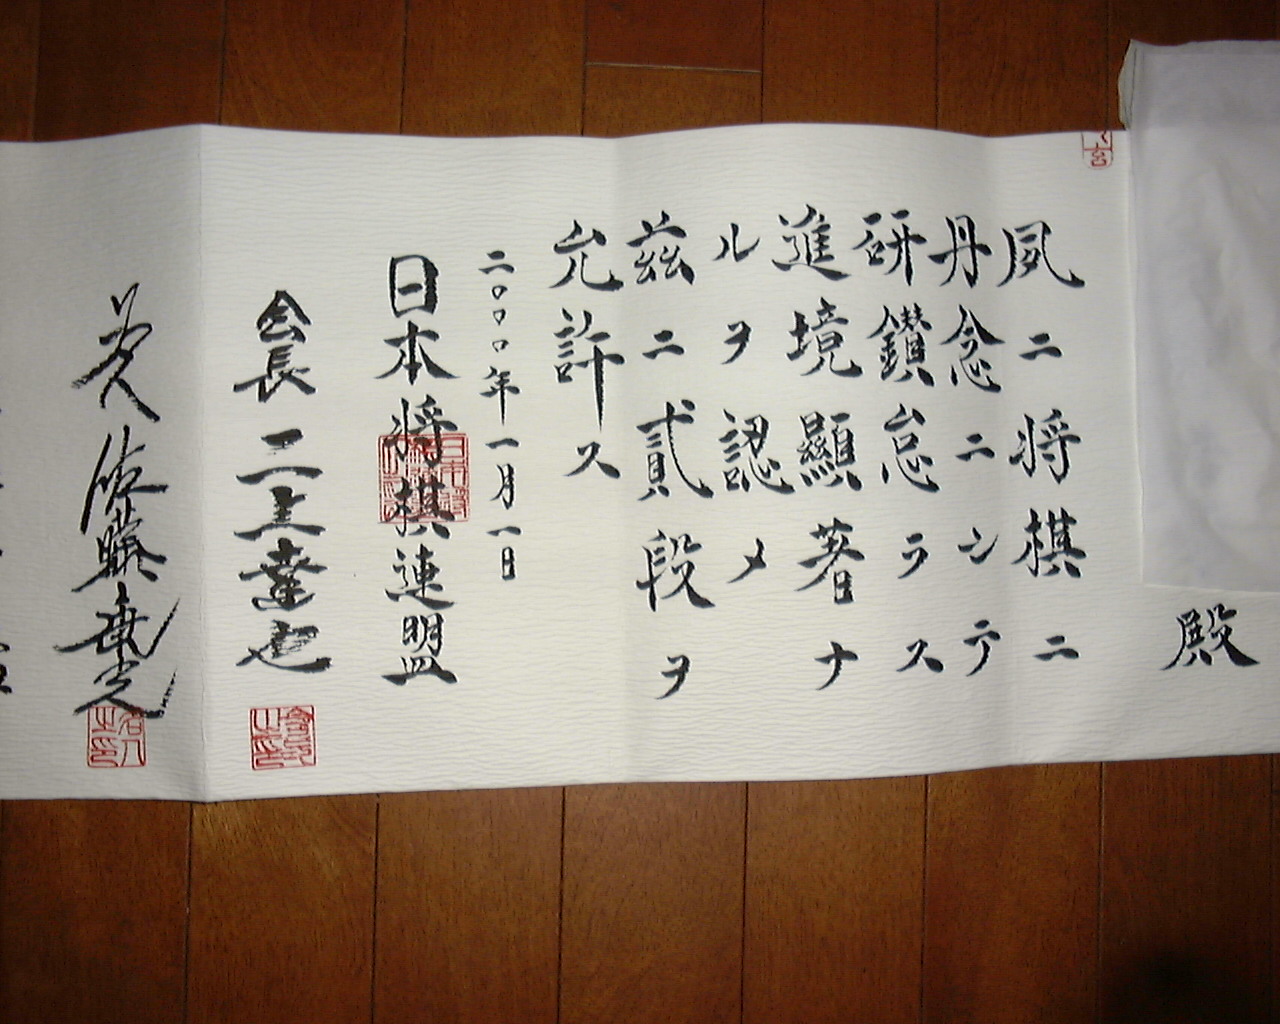 殿
夙ニ将棋ニ
丹念ニシテ
研鑽怠ラス
進境顯著ナ
ルヲ認メ
茲ニ貳段ヲ
允許ス
二〇〇〇年一月一日
日本将棋連盟
会長 二上達也
名人 佐藤康光